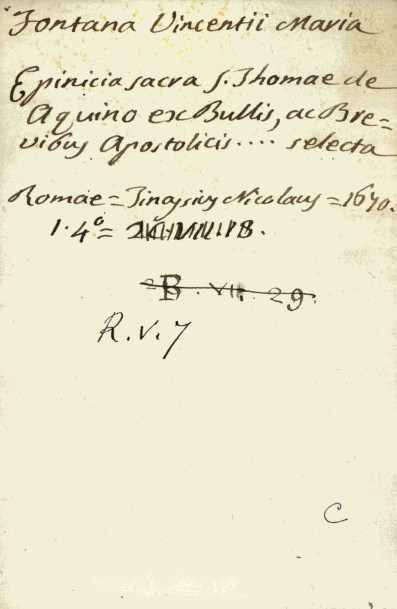 Fontana Vincentii Maria
Epinicia sacra S. Thomae de
Aquino ex Bullis, ac Bre=
vibus Apostolicis .... selecta
Romae = Tinassius Nicolaus = 1670.
1. 4° =
B. VII. 29.
R. V. 7
C